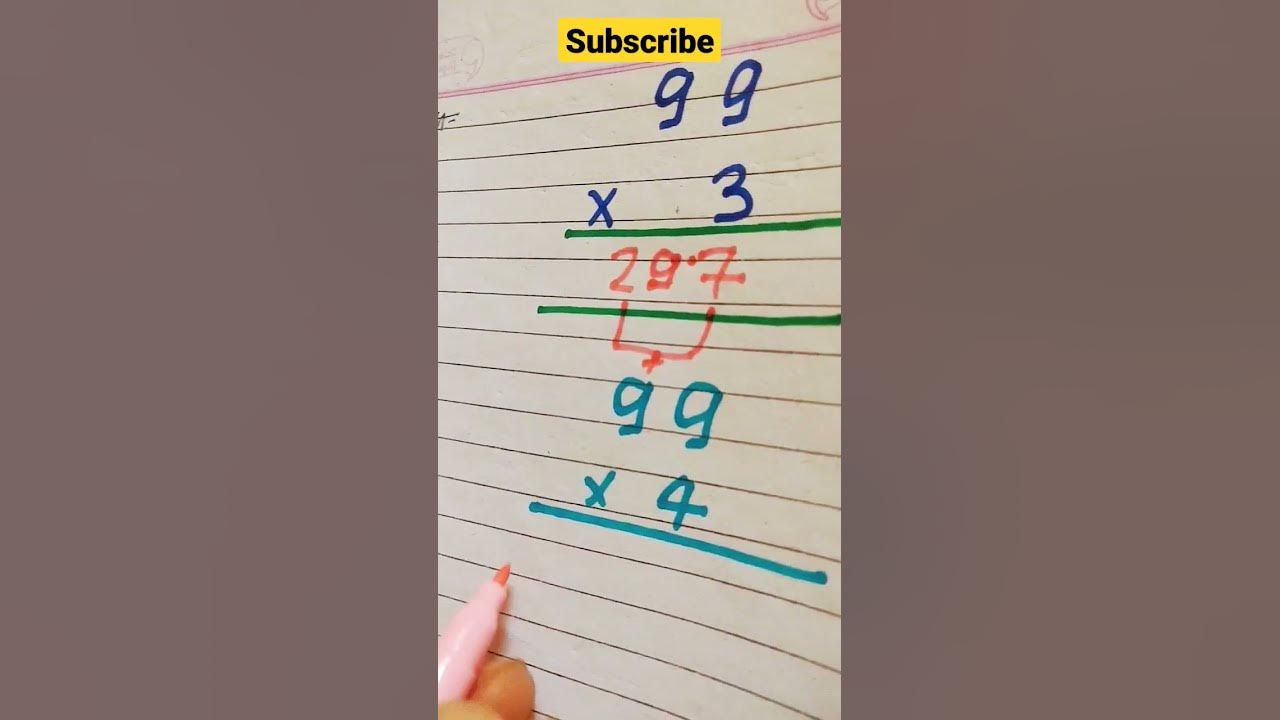 Subscribe
99
x 3
29.7
+
99
x 4